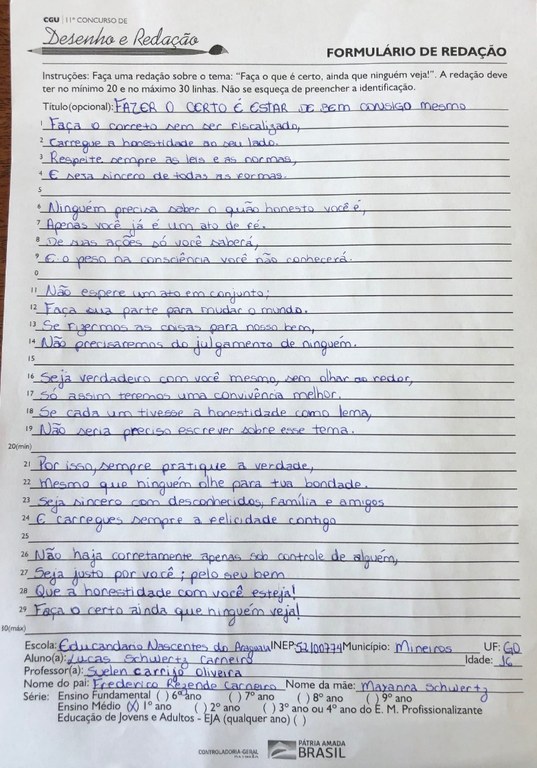 CGU | 11º CONCURSO DE
Desenho e Redação
FORMULÁRIO DE REDAÇÃO
Instruções: Faça uma redação sobre o tema: "Faça o que é certo, ainda que ninguém veja!". A redação deve
ter no mínimo 20 e no máximo 30 linhas. Não se esqueça de preencher a identificação.
Título(opcional): FAZER O CERTO É ESTAR DE BEM CONSIGO MESMO
1 Faça o correto sem ser fiscalizado,
2 Carregue a honestidade ao seu lado.
3 Respeite sempre as leis e as normas,
4 E seja sincero de todas as formas.
5
6 Ninguém precisa saber o quão honesto você é,
7 Apenas você já é um ato de fé.
8 De suas ações só você saberá,
9 E o peso na consciência você não conhecerá.
0
11 Não espere um ato em conjunto;
12 Faça sua parte para mudar o mundo.
13 Se fizermos as coisas para nosso bem,
14 Não precisaremos do julgamento de ninguém.
15
16 Seja verdadeiro com você mesmo, sem olhar ao redor,
17 Só assim teremos uma convivência melhor.
18 Se cada um tivesse a honestidade como lema,
19 Não seria preciso escrever sobre esse tema.
20(mín)
21 Por isso, sempre pratique a verdade,
22 Mesmo que ninguém olhe para tua bondade.
23 Seja sincero com desconhecidos, família e amigos
24 E carregues sempre a felicidade contigo
25
26 Não haja corretamente apenas sob controle de alguém,
27 Seja justo por você; pelo seu bem
28 Que a honestidade com você esteja!
29 Faça o certo ainda que ninguém veja!
30(máx)
Escola: Educandario Nascentes do Araguaia INEP: 52100774 Município: Mineiros UF: GO
Aluno(a): Lucas Schwertz Carneiro Idade: 16
Professor(a): Suelen Carrijo Oliveira
Nome do pai: Frederico Rezende Carneiro Nome da mãe: Mayanna Schwertz
Série: Ensino Fundamental ( ) 6º ano ( ) 7º ano ( ) 8º ano ( ) 9º ano
Ensino Médio (X) 1º ano ( ) 2º ano ( ) 3º ano ou 4º ano do E. M. Profissionalizante
Educação de Jovens e Adultos - EJA (qualquer ano) ( )
CONTROLADORIA-GERAL
DA UNIÃO
PÁTRIA AMADA
BRASIL